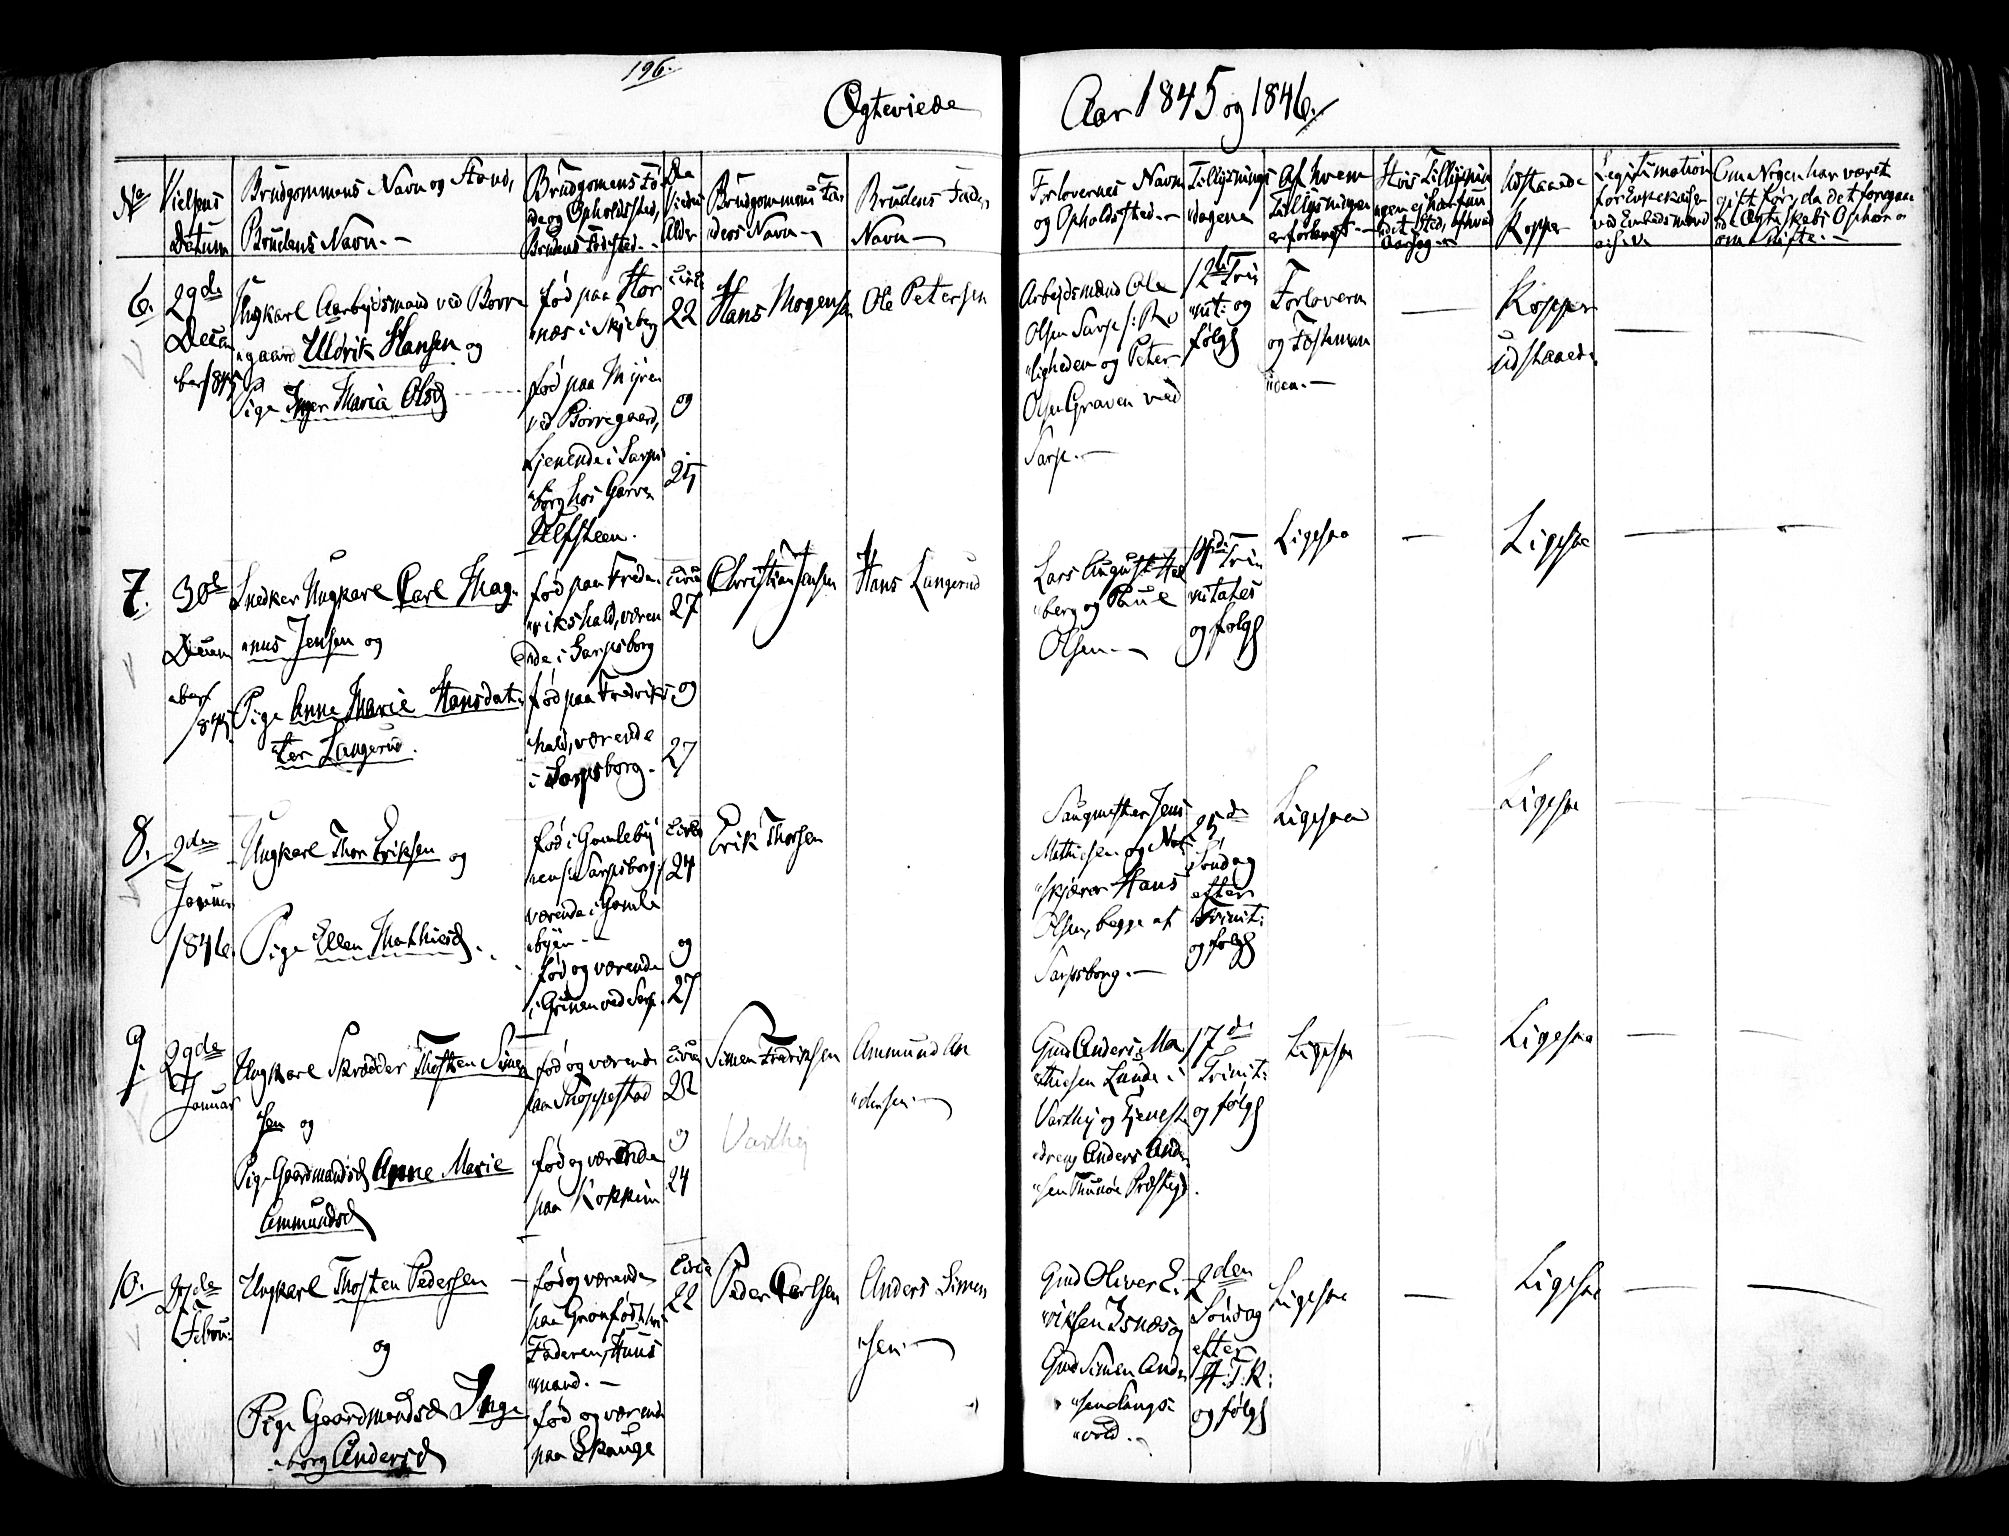 196.
Ægteviede
Aar 1845 og 1846.
No
Vielsens
Datum
Brudgommens Navn og Stand,
Brudens Navn.
Brudgomens Fø-
de og Opholdssted,
Brudens Fødested.
De
Viedes
Alder
Brudgommens Fa-
ders Navn
Brudens Faders
Navn
Forlovernes Navn
og Opholdssted.
Tillysnings
dagene
Af hvem
Tillysningen
er forlangt.
Hvis Tillysnin
gen ei har fun
det Sted, af hvad
Aarsag.
Udstaaede
Kopper
Legitimation
for Enkekasse
ved Embedsmænd
Om Nogen har været
gift før, da det foregaae
de Ægteskabs Ophør
om Skifte.
6.
29de
Decem
ber 1845
Ungkarl Aarbejdsmand ved Borre
gaard Uldrik Hansen og
Pige Inger Maria Olsd
fød paa Hor
næs i Skjeberg
fød paa Myren
ved Borregaard,
tjenende i Sarps
borg hos Garver
Ulfsteen.
circa
22
og
25
Hans Mogensen
Ole Petersen
Arbejdsmænd Ole
Olsen Sarps
ligheden og Peter
Olsen Graven ved
Sarp.
12te Tri
nit: og
følg
Forloverne
og Fostmon
—
Kopper
udstaaede
—
—
7.
30te
Decem
ber
1845
Snedker Ungkarl Carl Mag-
nus Jensen og
Pige Anne Marie Hansdat-
ter Langerud.
fød paa Frede
rikshald, væren
de i Sarpsborg
fød paa Fredriks
hald, værende
i Sarpsborg.
circa
27
og
27
Christian Jensen
Hans Langerud
Lars August Hel
berg og Paul
Olsen.
Trin
nitates
og følg
Ligesaa
—
Ligesaa
—
8.
2den
Januar
1846.
Ungkarl Thor Eriksen og
Pige Ellen Mathiesd.
fød i Gamleby
en i Sarpsborg,
værende i Gamle
byen.
fød og værende
i Grinen ved Sarp.
circa
24
og
27
Erik Thorsen
Saugmester Jens
Mathiesen og
skjærer Hans
Olsen, begge af
Sarpsborg.
25de
Søndag
efter
Trinit:
og følg
Ligesaa
Ligesaa
9.
29de
Januar
Ungkarl Skrædder Thosten Simen
sen og
Pige Gaardmandsd Anne Marie
Ammundsd
fød og værende
paa Thoppestad
fød og værende
paa Kokkim
circa
22
og
24
Simen Fredriksen
Varthej
Ammund An
dersen
Gmd Anders Ma
thiesen Lunde i
Varthej og Tjeneste
dreng Anders Ande
sen Thunøe Præstegd.
17de
Trinit:
og følg
Ligesaa
—
Ligesaa
—
—
10.
27de
Febru:
Ungkarl Thosten Pedersen
og
Pige Gaardmandsd Inge
borg Andersd
fød og værende
paa Grønfødt hos
Faderen, Huus
mand.
fød og værende
paa Skauge
circa
22
Peder Carlsen
Anders Simen
sen
Gmd Oliver E
riksen Isnæs og
Gmd Simen Ande
sen Langs
vold.
2den
Søndag
efter
H.T.K:
og følg
Ligesaa
—
Ligesaa
—
—